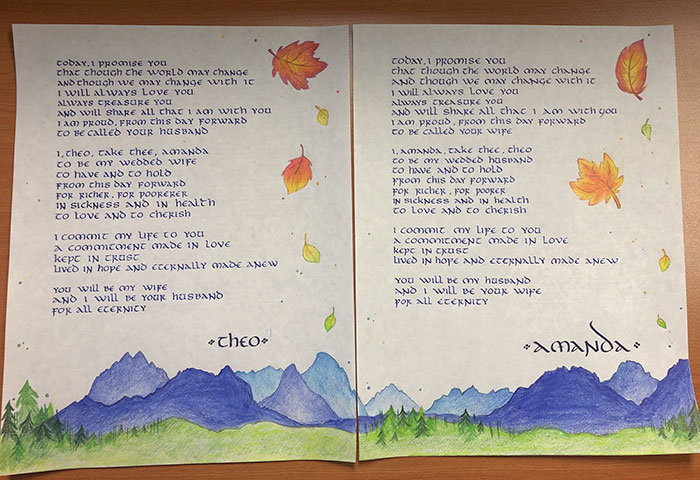 TODAY, I PROMISE YOU
THAT THOUGH THE WORLD MAY CHANGE
AND THOUGH WE MAY CHANGE WITH IT
I WILL ALWAYS LOVE YOU
ALWAYS TREASURE YOU
AND WILL SHARE ALL THAT I AM WITH YOU
I AM PROUD, FROM THIS DAY FORWARD
TO BE CALLED YOUR HUSBAND
I, THEO, TAKE THEE, AMANDA
TO BE MY WEDDED WIFE
TO HAVE AND TO HOLD
FROM THIS DAY FORWARD
FOR RICHER, FOR POORERER
IN SICKNESS AND IN HEALTH
TO LOVE AND TO CHERISH
I COMMIT MY LIFE TO YOU
A COMMITMENT MADE IN LOVE
KEPT IN TRUST
LIVED IN HOPE AND ETERNALLY MADE ANEW
YOU WILL BE MY WIFE
AND I WILL BE YOUR HUSBAND
FOR ALL ETERNITY
THEO
TODAY, I PROMISE YOU
THAT THOUGH THE WORLD MAY CHANGE
AND THOUGH WE MAY CHANGE WITH IT
I WILL ALWAYS LOVE YOU
ALWAYS TREASURE YOU
AND WILL SHARE ALL THAT I AM WITH YOU
I AM PROUD, FROM THIS DAY FORWARD
TO BE CALLED YOUR WIFE
I, AMANDA, TAKE THEE, THEO
TO BE MY WEDDED HUSBAND
TO HAVE AND TO HOLD
FROM THIS DAY FORWARD
FOR RICHER, FOR POORER
IN SICKNESS AND IN HEALTH
TO LOVE AND TO CHERISH
I COMMIT MY LIFE TO YOU
A COMMITMENT MADE IN LOVE
KEPT IN TRUST
LIVED IN HOPE AND ETERNALLY MADE ANEW
YOU WILL BE MY HUSBAND
AND I WILL BE YOUR WIFE
FOR ALL ETERNITY
AMANDA